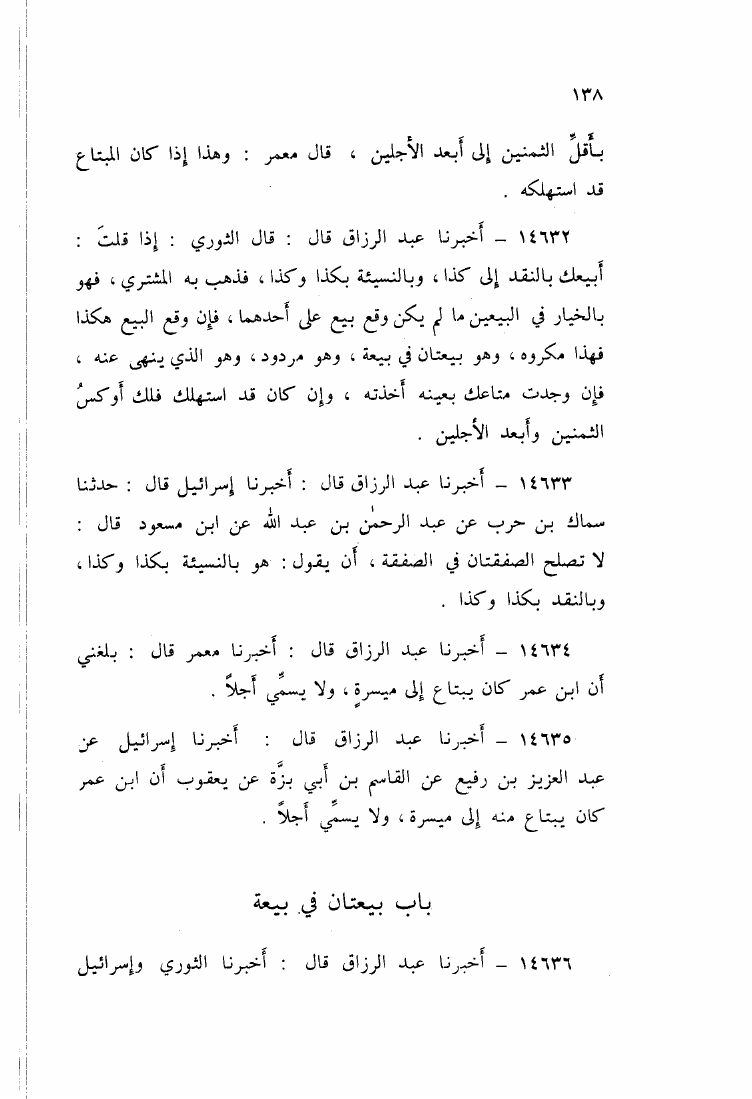 ١٣٨
بأَقلِّ الثمنين إلى أبعد الأجلين ، قال معمر : وهذا إذا كان المبتاع
قد استهلكه .
١٤٦٣٢ – أخبرنا عبد الرزاق قال : قال الثوري : إذا قلتَ :
أبيعك بالنقد إلى كذا ، وبالنسيئة بكذا وكذا ، فذهب به المشتري ، فهو
بالخيار في البيعين ما لم يكن وقع بيع على أحدهما ، فإن وقع البيع هكذا
فهذا مكروه ، وهو بيعتان في بيعة ، وهو مردود ، وهو الذي ينهى عنه ،
فإن وجدت متاعك بعينه أخذته ، وإن كان قد استهلك فلك أوكسُ
الثمنين وأبعد الأجلين .
١٤٦٣٣ – أخبرنا عبد الرزاق قال : أخبرنا إسرائيل قال : حدثنا
سماك بن حرب عن عبد الرحمٰن بن عبد الله عن ابن مسعود قال :
لا تصلح الصفقتان في الصفقة ، أن يقول : هو بالنسيئة بكذا وكذا ،
وبالنقد بكذا وكذا .
١٤٦٣٤ – أخبرنا عبد الرزاق قال : أخبرنا معمر قال : بلغني
أن ابن عمر كان يبتاع إلى ميسرةٍ ، ولا يسمِّي أجلاً .
١٤٦٣٥ – أخبرنا عبد الرزاق قال : أخبرنا إسرائيل عن
عبد العزيز بن رفيع عن القاسم بن أبي بزَّة عن يعقوب أن ابن عمر
كان يبتاع منه إلى ميسرة ، ولا يسمِّي أجلاً .
باب بيعتان في بيعة
١٤٦٣٦ – أخبرنا عبد الرزاق قال : أخبرنا الثوري وإسرائيل